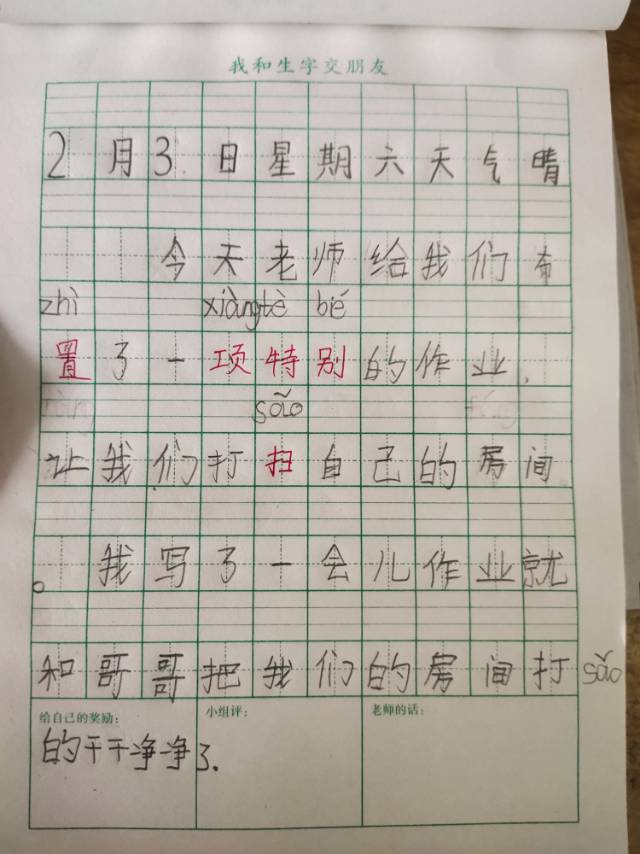 我和生字交朋友
2月3.日星期六天气晴
今天老师给我们布
zhì xiàngtè bié
置了一项特别的作业,
sǎo
让我们打扫自己的房间
。我写了一会儿作业就
和哥哥把我们的房间打sǎo
给自己的奖励: 小组评: 老师的话:
的干干净净了.